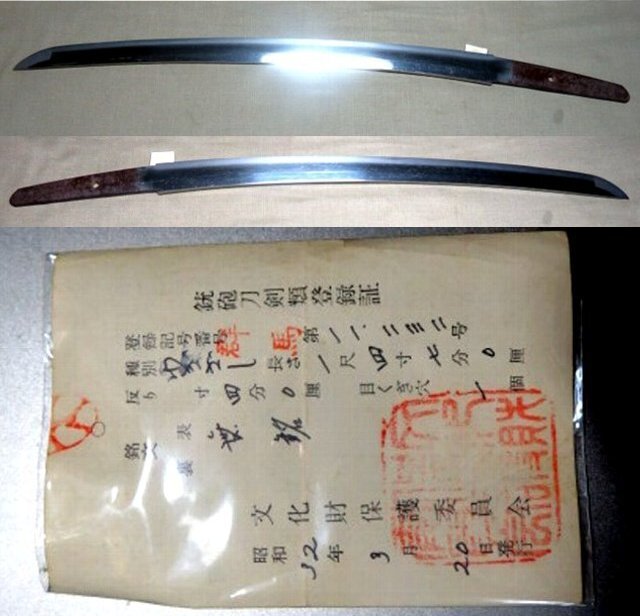 銃砲刀剣類登録証
登録記号番号 群馬 第 号
種別 わきざし 長さ 一尺四寸七分0厘
反り 寸四分0厘 目くぎ穴 1個
銘文 表 無銘
裏
文化財保護委員会
昭和32年3月20日発行